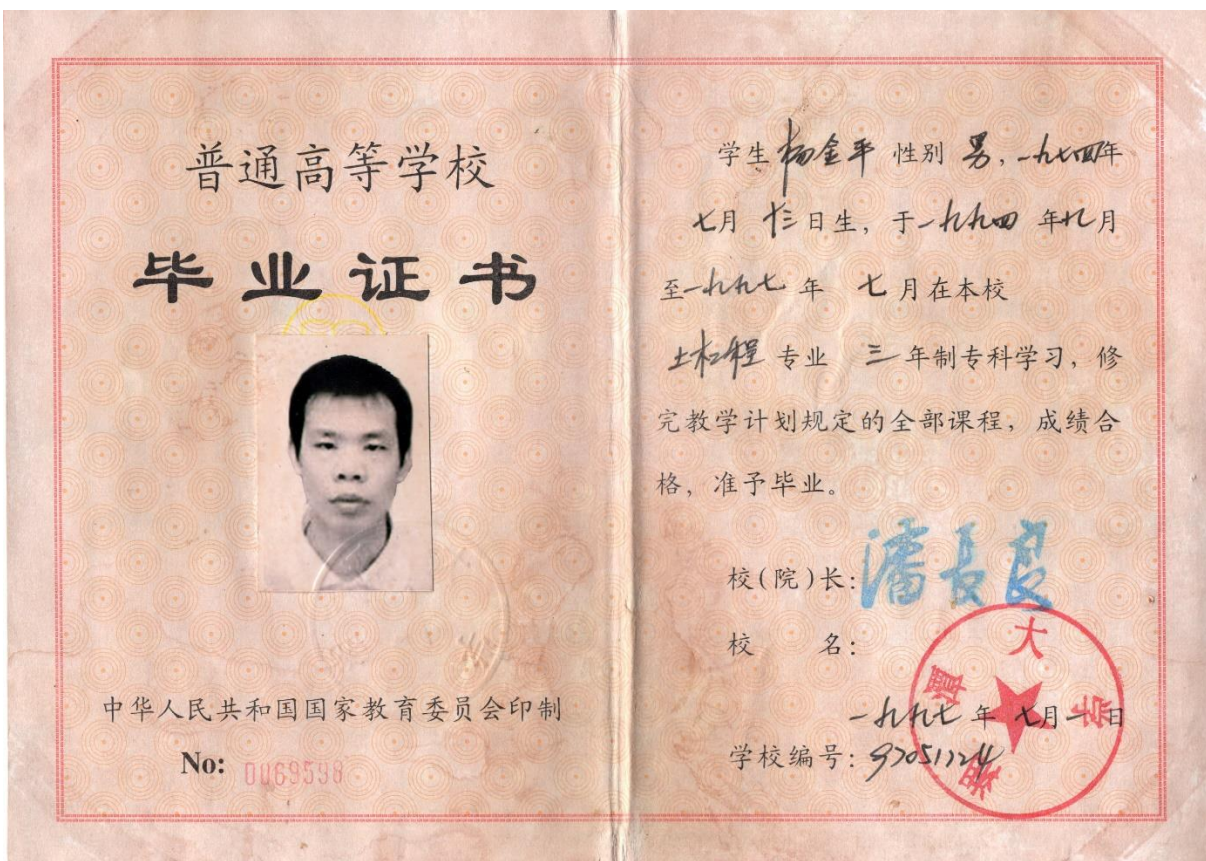 普通高等学校
毕业证书
中华人民共和国国家教育委员会印制
No: 0069598
学生杨金平 性别 男,一九七四年
七月 十三日生,于一九九四 年九月
至一九九七 年 七月在本校
土木工程 专业 三年制专科学习,修
完教学计划规定的全部课程,成绩合
格,准予毕业。
校(院)长:潘长良
校 名:
湘潭大学
一九九七 年 七月一日
学校编号:97051124